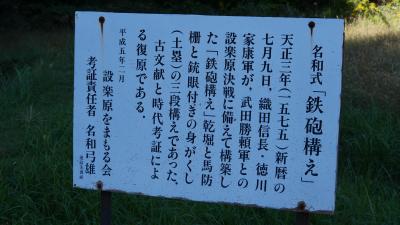 名和式「鉄砲構え」
天正三年（一五七五）新暦の
七月九日，織田信長・徳川
家康軍が，武田勝頼軍との
設楽原決戦に備えて構築し
た「鉄砲構え」乾堀と馬防
柵と銃眼付きの身がくし
（土塁）の三段構えであった。
古文献と時代考証によ
る復原である。
平成五年二月
設楽原をまもる会
考証責任者　名和弓雄